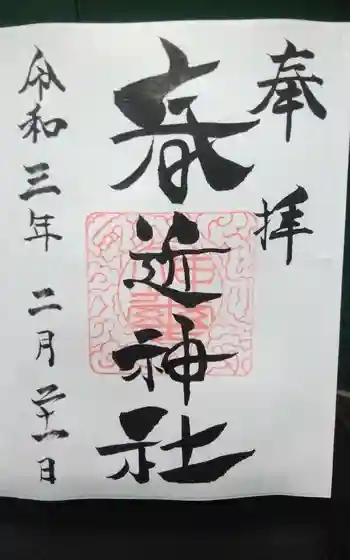 奉拝
春近神社
令和三年二月二十一日